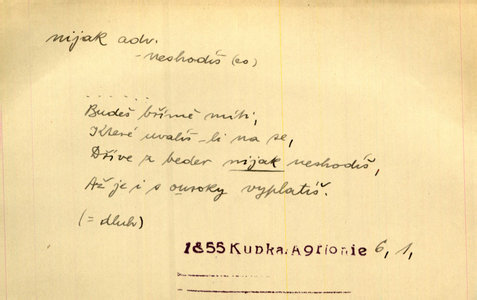 nijak adv.
- neshodíš (co)
.......
Budeš břímě míti,
Které uvalíš-li na se,
Dříve z beder nijak neshodíš,
Až je i s ouroky vyplatíš.
(= dluh)
1855 Kupka, Agrionie 6, 1,